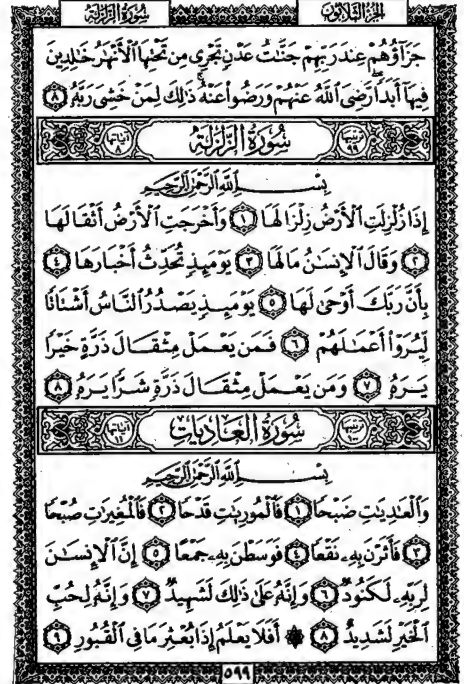 الجزء الثلاثون
سورة الزلزلة
جَزَآؤُهُمْ عِندَ رَبِّهِمْ جَنَّـٰتُ عَدْنٍ تَجْرِى مِن تَحْتِهَا ٱلْأَنْهَـٰرُ خَـٰلِدِينَ
فِيهَآ أَبَدًا رَّضِىَ ٱللَّهُ عَنْهُمْ وَرَضُوا۟ عَنْهُ ذَٰلِكَ لِمَنْ خَشِىَ رَبَّهُۥ ٨
ترتيبها ٩٩ سُورَةُ الزَّلْزَلَةِ آياتها ٨
بِسْمِ ٱللَّهِ ٱلرَّحْمَـٰنِ ٱلرَّحِيمِ
إِذَا زُلْزِلَتِ ٱلْأَرْضُ زِلْزَالَهَا ١ وَأَخْرَجَتِ ٱلْأَرْضُ أَثْقَالَهَا
٢ وَقَالَ ٱلْإِنسَـٰنُ مَا لَهَا ٣ يَوْمَئِذٍ تُحَدِّثُ أَخْبَارَهَا ٤
بِأَنَّ رَبَّكَ أَوْحَىٰ لَهَا ٥ يَوْمَئِذٍ يَصْدُرُ ٱلنَّاسُ أَشْتَاتًا
لِّيُرَوْا۟ أَعْمَـٰلَهُمْ ٦ فَمَن يَعْمَلْ مِثْقَالَ ذَرَّةٍ خَيْرًا
يَرَهُۥ ٧ وَمَن يَعْمَلْ مِثْقَالَ ذَرَّةٍ شَرًّا يَرَهُۥ ٨
ترتيبها ١٠٠ سُورَةُ العَادِيَاتِ آياتها ١١
بِسْمِ ٱللَّهِ ٱلرَّحْمَـٰنِ ٱلرَّحِيمِ
وَٱلْعَـٰدِيَـٰتِ ضَبْحًا ١ فَٱلْمُورِيَـٰتِ قَدْحًا ٢ فَٱلْمُغِيرَٰتِ صُبْحًا
٣ فَأَثَرْنَ بِهِۦ نَقْعًا ٤ فَوَسَطْنَ بِهِۦ جَمْعًا ٥ إِنَّ ٱلْإِنسَـٰنَ
لِرَبِّهِۦ لَكَنُودٌ ٦ وَإِنَّهُۥ عَلَىٰ ذَٰلِكَ لَشَهِيدٌ ٧ وَإِنَّهُۥ لِحُبِّ
ٱلْخَيْرِ لَشَدِيدٌ ٨ ۞ أَفَلَا يَعْلَمُ إِذَا بُعْثِرَ مَا فِى ٱلْقُبُورِ ٩
٥٩٩